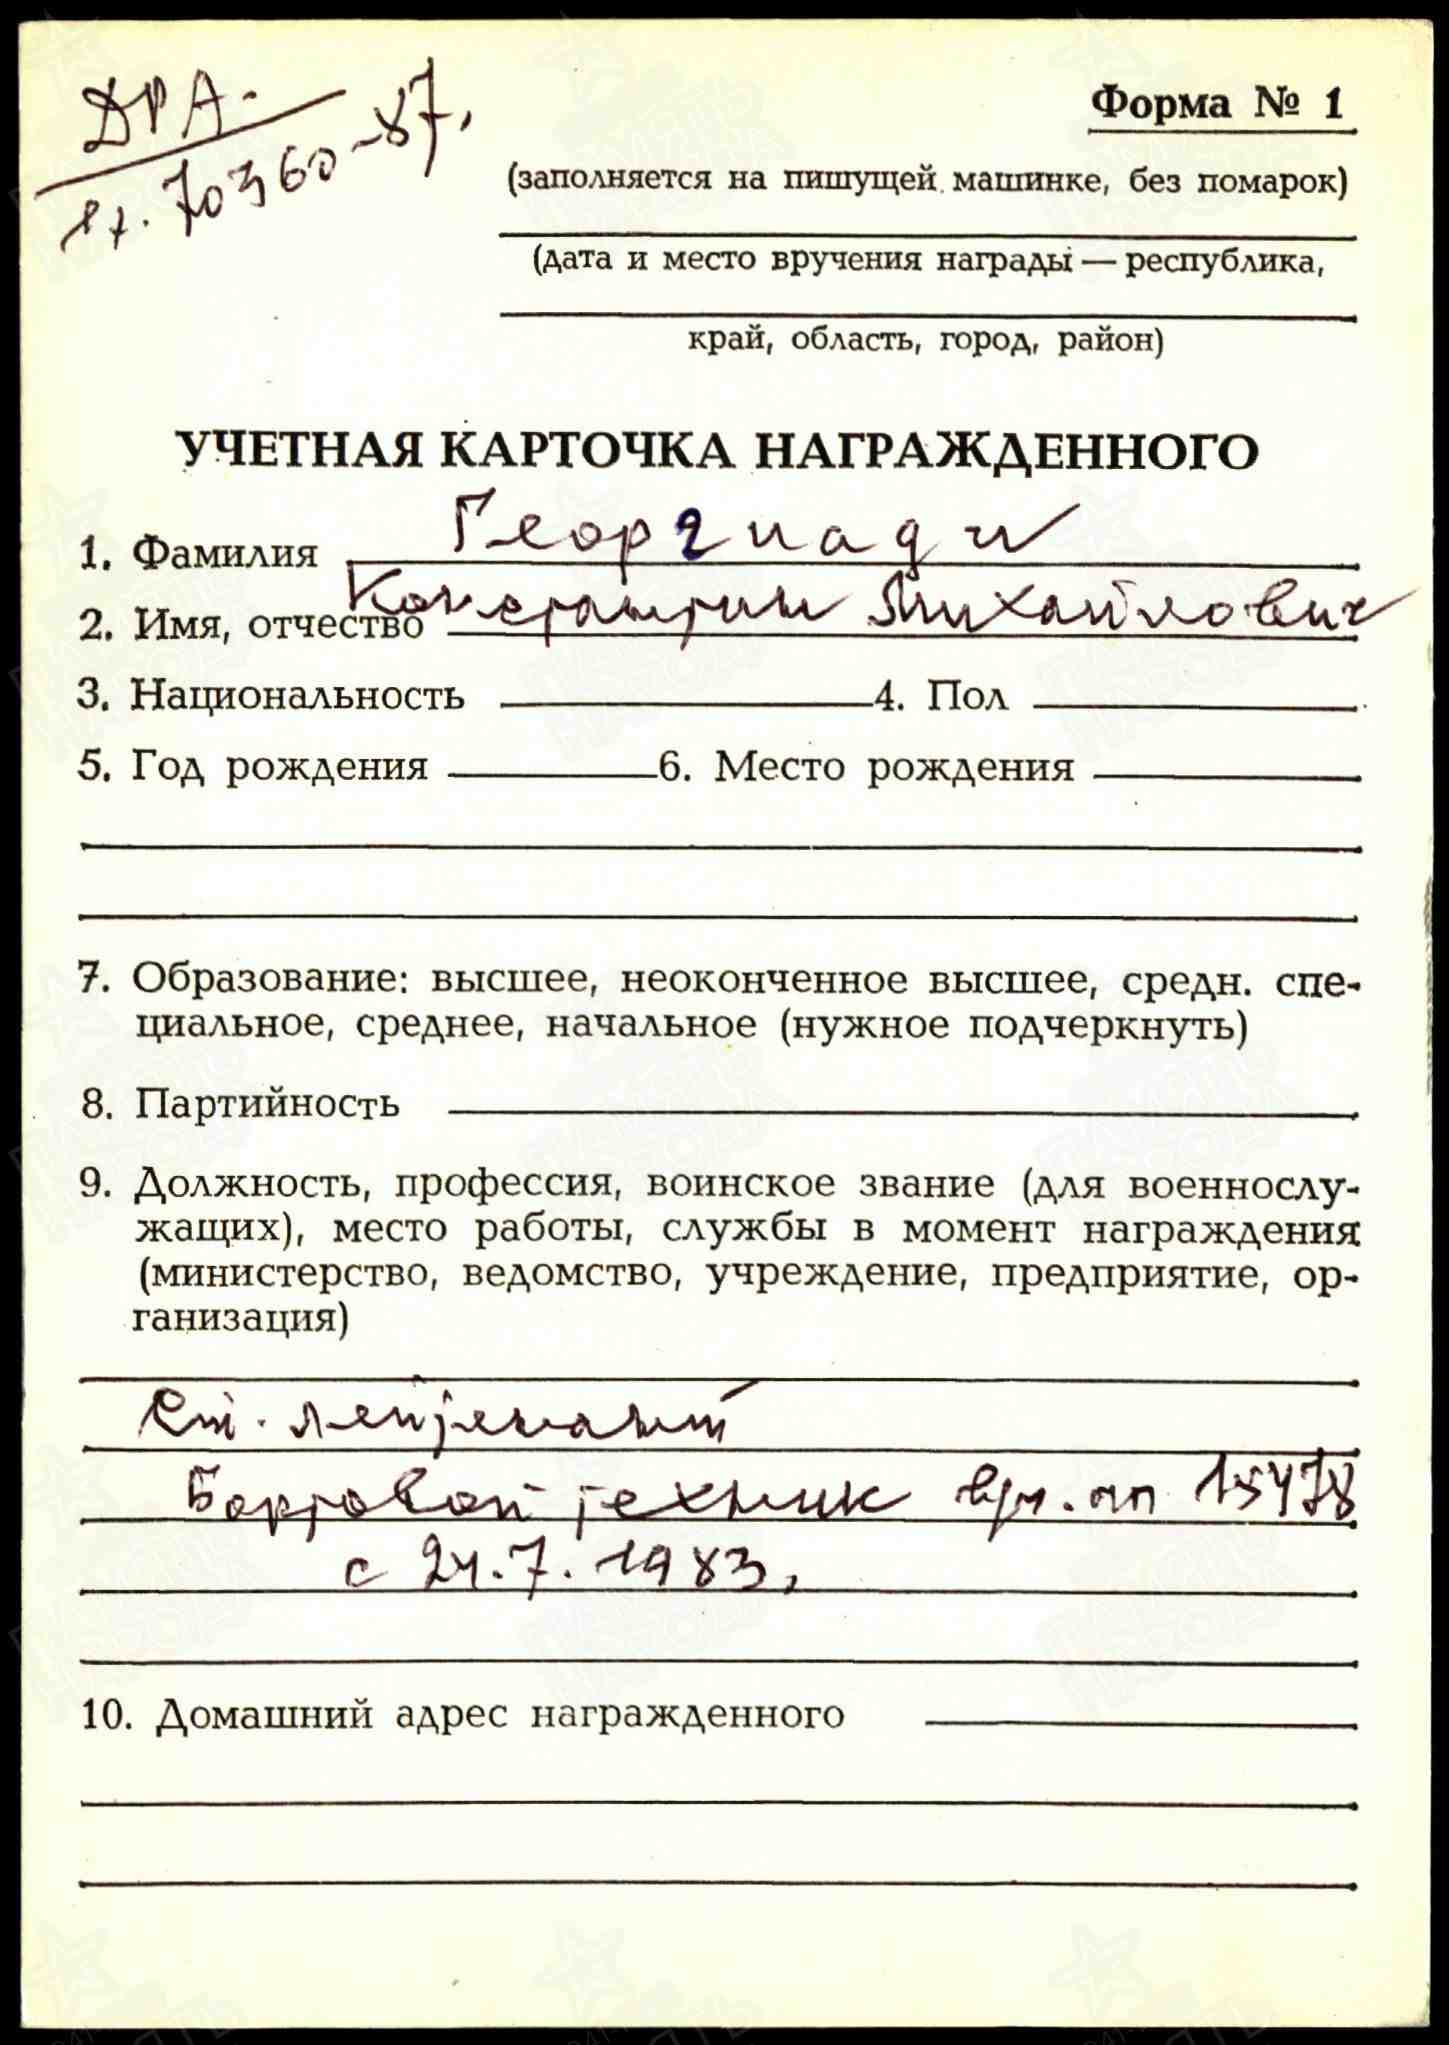 ДРА.
вх. 70360-87.
Форма № 1
(заполняется на пишущей машинке, без помарок)
(дата и место вручения награды — республика,
край, область, город, район)
УЧЕТНАЯ КАРТОЧКА НАГРАЖДЕННОГО
1. Фамилия Георгиади
2. Имя, отчество Константин Михайлович
3. Национальность 4. Пол
5. Год рождения 6. Место рождения
7. Образование: высшее, неоконченное высшее, средн. спе-
циальное, среднее, начальное (нужное подчеркнуть)
8. Партийность
9. Должность, профессия, воинское звание (для военнослу-
жащих), место работы, службы в момент награждения
(министерство, ведомство, учреждение, предприятие, ор-
ганизация)
Ст. лейтенант
Бортовой техник в/ч. пп 15478
с 24.7.1983,
10. Домашний адрес награжденного